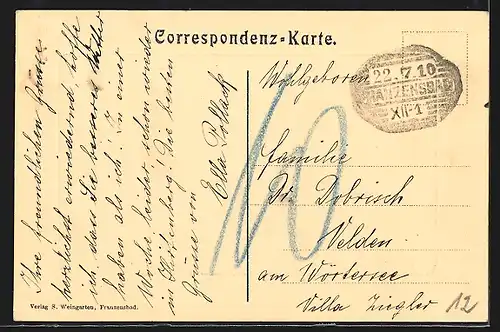 Correspondenz-Karte.
22.7.10
FRANZENSBAD
XII-1
Wohlgeboren
Familie
Dr. Dobrisch
Velden
am Wörtersee
Villa Ziegler
12
10
Ihre freundlichen Grüsse
herzlichst erwiedernd, hoffe
ich dass Sie besseres Wetter
haben als ich. In einer
Woche leider schon wieder
in Fürstenberg! Die besten
Grüsse von Ella Pollack
Verlag S. Weingarten, Franzensbad.